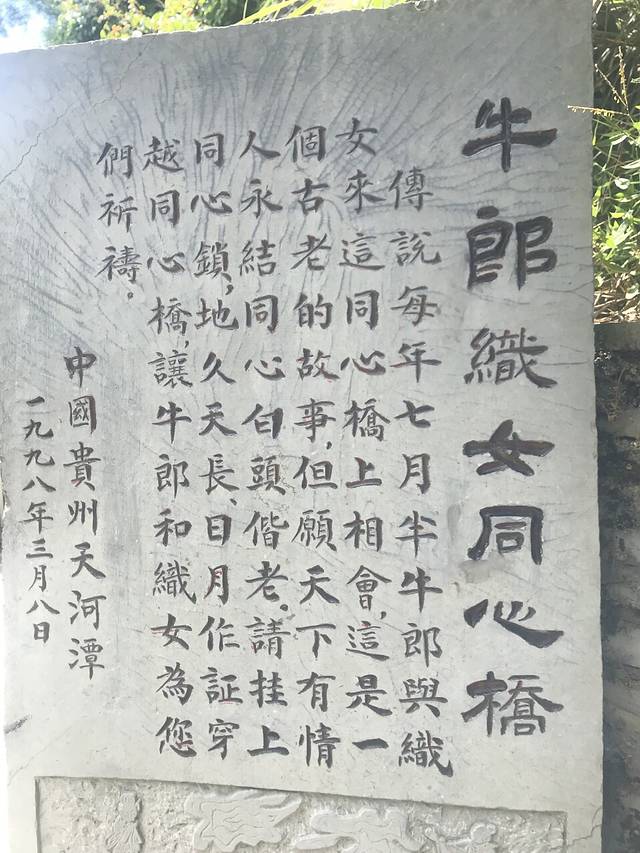 牛郎織女同心橋
傳說每年七月半牛郎與織
女來這同心橋上相會,這是一
個古老的故事,但願天下有情
人永結同心白頭偕老。請挂上
同心鎖,地久天長、日月作証穿
越同心橋,讓牛郎和織女為您
們祈禱。
中國貴州天河潭
一九九八年三月八日